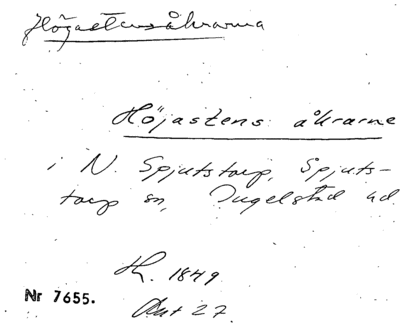 Högastensåkrarna
Höjastens åkrarne
i N. Spjutstorp, Spjuts-
torp sn, Ingelstad hd.
Th. 1849
Akt 27
Nr 7655.